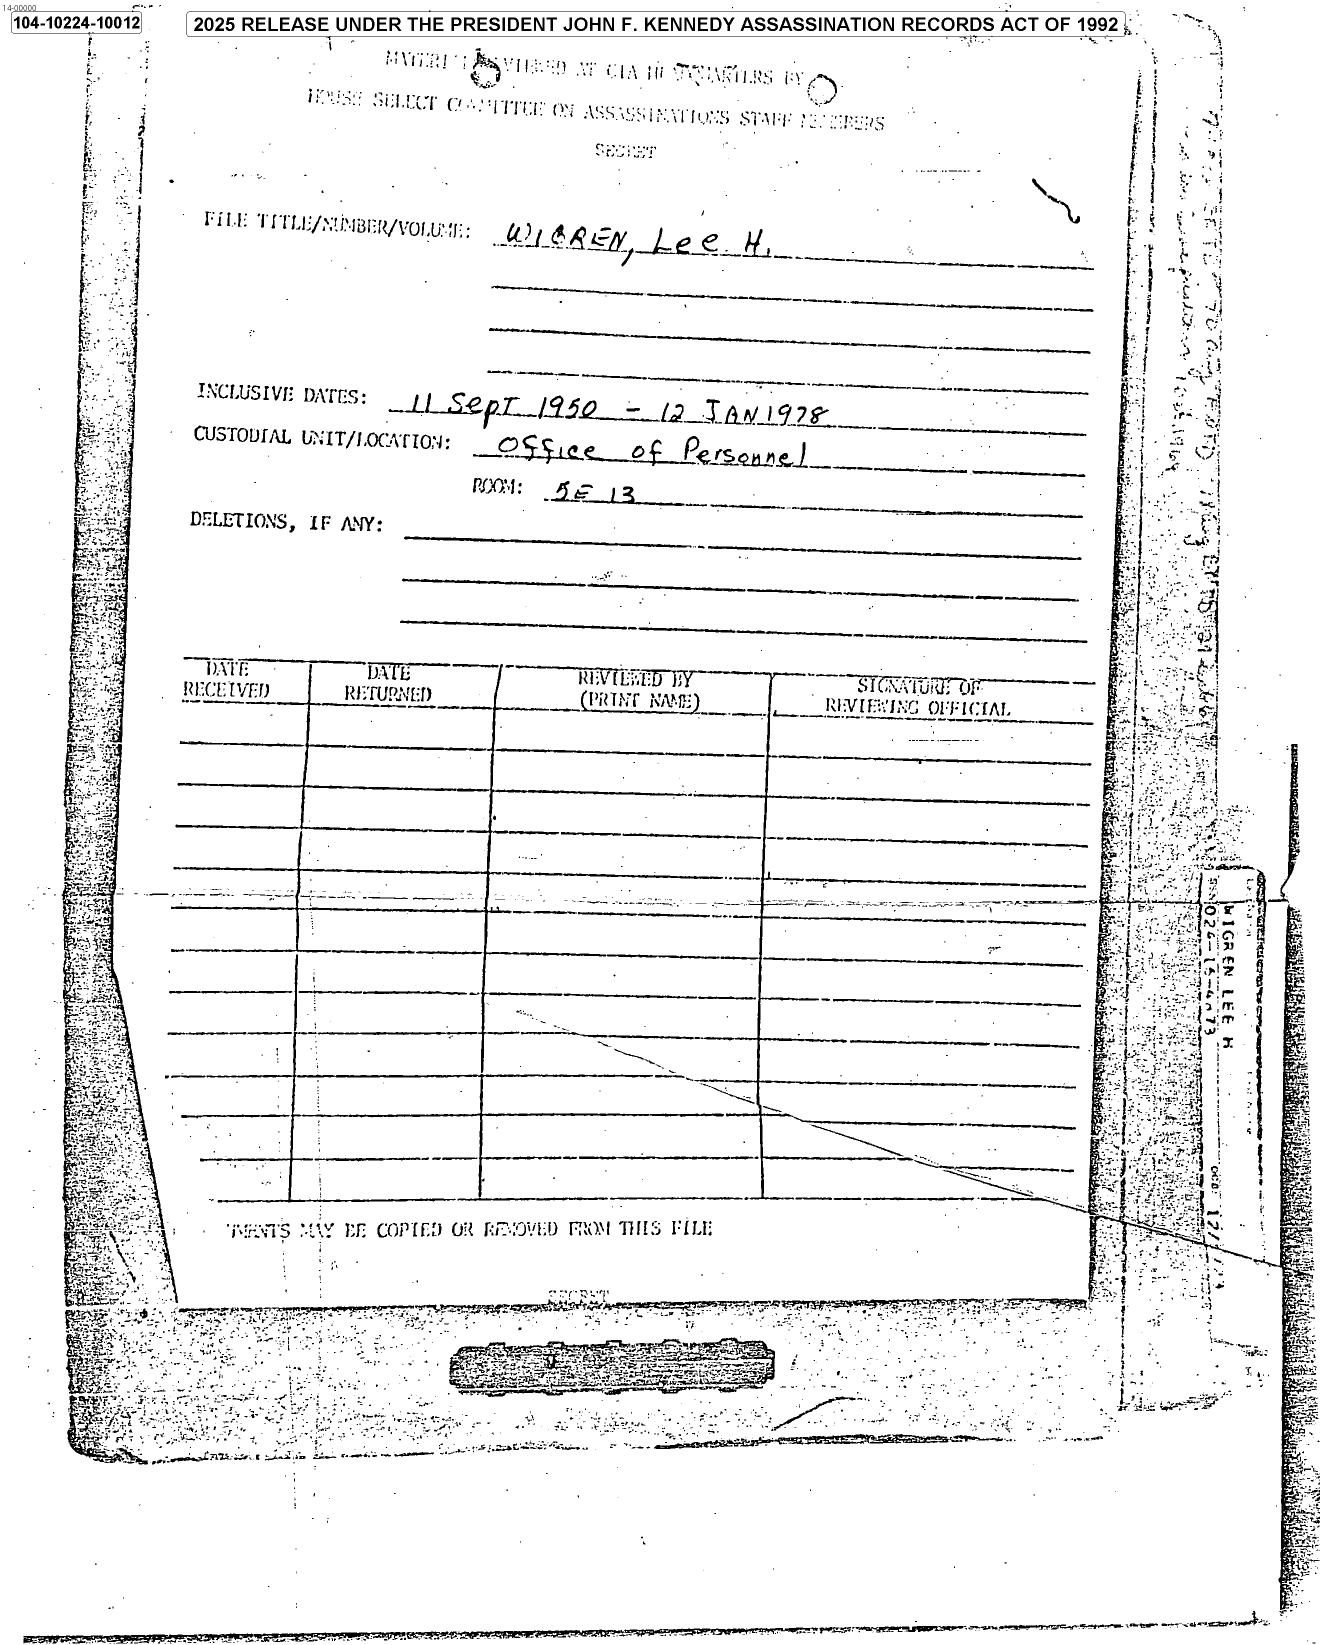 14-00000
104-10224-10012
2025 RELEASE UNDER THE PRESIDENT JOHN F. KENNEDY ASSASSINATION RECORDS ACT OF 1992
AT CIA BY
HOUSE SELECT COMMITTEE ON ASSASSINATIONS STAFF MEMBERS
SECRET
FILE TITLE/NUMBER/VOLUME: WIGREN, Lee H.
INCLUSIVE DATES: 11 Sept 1950 - 12 JAN 1978
CUSTODIAL UNIT/LOCATION: Office of Personnel
ROOM: 5E 13
DELETIONS, IF ANY:
DATE RECEIVED
DATE RETURNED
REVIEWED BY (PRINT NAME)
SIGNATURE OF REVIEWING OFFICIAL
MAY BE COPIED OR REMOVED FROM THIS FILE
SECRET
WIGREN LEE H